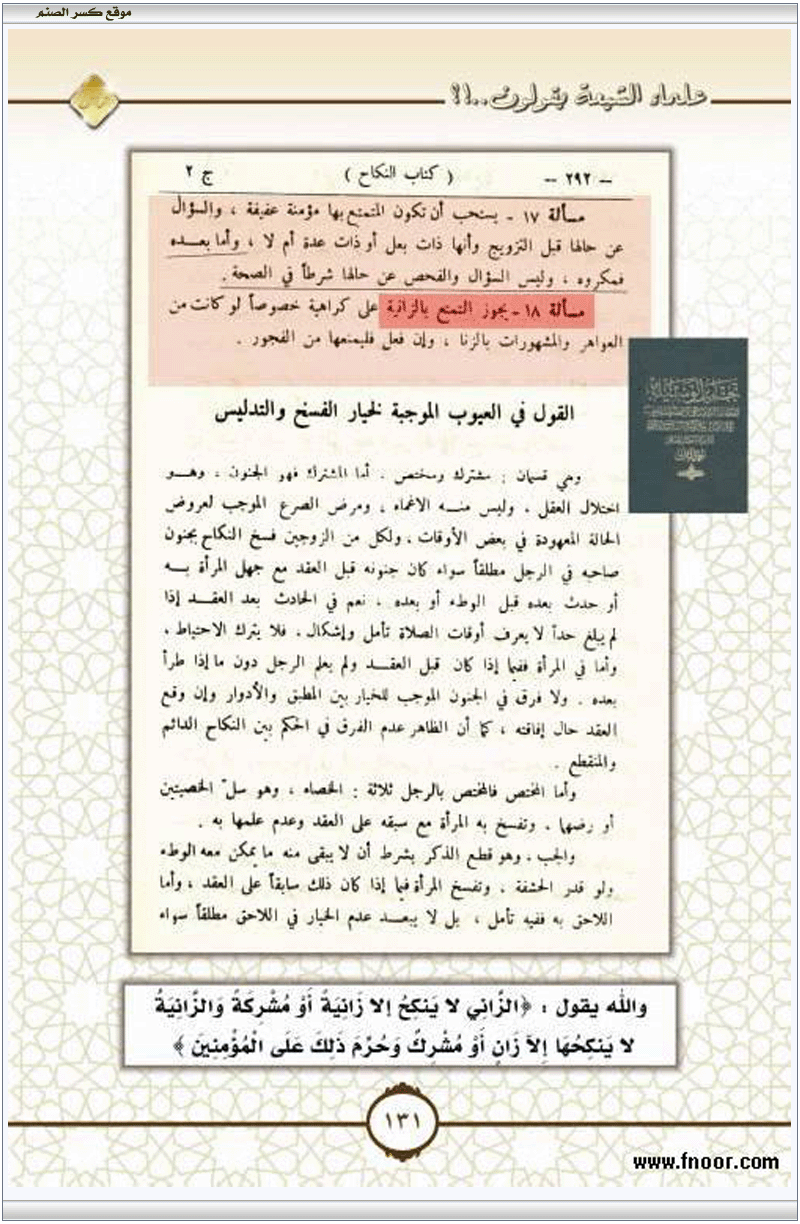 موقع كسر الصنم
علماء الشيعة يقولون..!؟
ج ٢ ( كتاب النكاح ) — ٢٩٢ —
مسألة ١٧ - يستحب أن تكون المتمتع بها مؤمنة عفيفة ، والسؤال
عن حالها قبل التزويج وأنها ذات بعل أو ذات عدة أم لا ، وأما بعـــده
فمكروه ، وليس السؤال والفحص عن حالها شرطاً في الصحة .
مسألة ١٨ - يجوز التمتع بالزانية على كراهية خصوصاً لو كانت من
العواهر والمشهورات بالزنا ، وإن فعل فليمنعها من الفجور .
القول في العيوب الموجبة لخيار الفسخ والتدليس
وهي قسمان : مشترك ومختص . أما المشترك فهو الجنون ، وهـــو
اختلال العقل ، وليس منـــه الاغماء ، ومرض الصرع الموجب لعروض
الحالة المعهودة في بعض الأوقات ، ولكل من الزوجين فسخ النكاح بجنون
صاحبه في الرجل مطلقاً سواء كان جنونه قبل العقد مع جهل المرأة بـــه
أو حدث بعده قبل الوطء أو بعده ، نعم في الحادث بعد العقـــد إذا
لم يبلغ حداً لا يعرف أوقات الصلاة تأمل وإشكال ، فلا يترك الاحتياط ،
وأما في المرأة ففيما إذا كان قبل العقـــد ولم يعلم الرجل دون ما إذا طرأ
بعده . ولا فرق في الجنون الموجب للخيار بين المطبق والأدوار وإن وقع
العقد حال إفاقته ، كما أن الظاهر عدم الفرق في الحكم بين النكاح الدائم
والمنقطع .
وأما المختص فالمختص بالرجل ثلاثة : الخصاء ، وهو سلّ الخصيتين
أو رضهما ، وتفسخ به المرأة مع سبقه على العقد وعدم علمها به .
والجب ، وهو قطع الذكر بشرط أن لا يبقى منه ما يمكن معه الوطء
ولو قدر الحشفة ، وتفسخ المرأة فيما إذا كان ذلك سابقاً على العقد ، وأما
اللاحق به ففيه تأمل ، بل لا يبعـــد عدم الخيار في اللاحق مطلقاً سواء
والله يقول : ﴿الزَّانِي لا يَنكِحُ إلا زَانِيَةً أَوْ مُشْرِكَةً وَالزَّانِيَةُ
لا يَنكِحُهَا إِلاَّ زَانٍ أَوْ مُشْرِكٌ وَحُرِّمَ ذَلِكَ عَلَى الْمُؤْمِنِينَ﴾
١٣١
www.fnoor.com